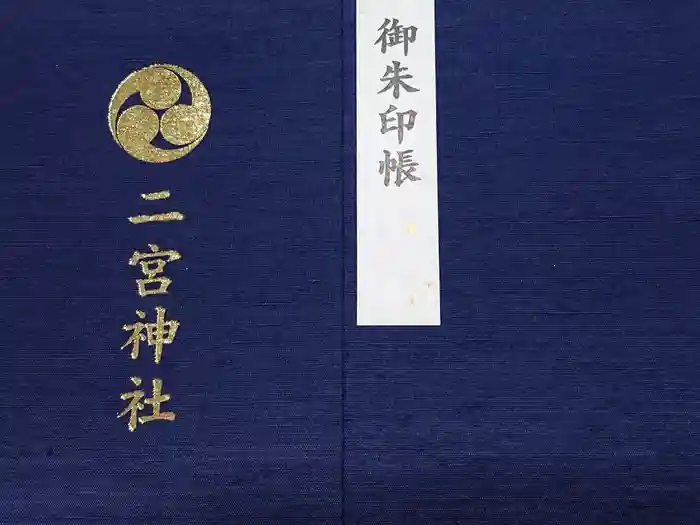 御朱印帳
二宮神社